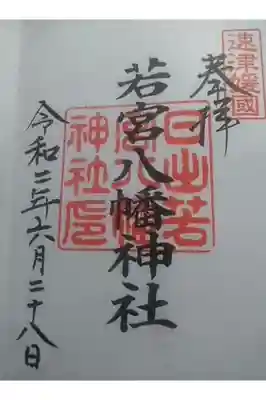 速津媛國
奉拝
若宮八幡神社
日出若
宮八幡
神社印
令和三年六月二十八日